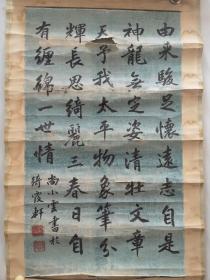 由来駿足懷遠志自是
神龍無定姿清壮文章
天予我太平物象筆分
輝長思綺麗三春日自
有纏綿一世情
尚小雲書於
綺霞軒